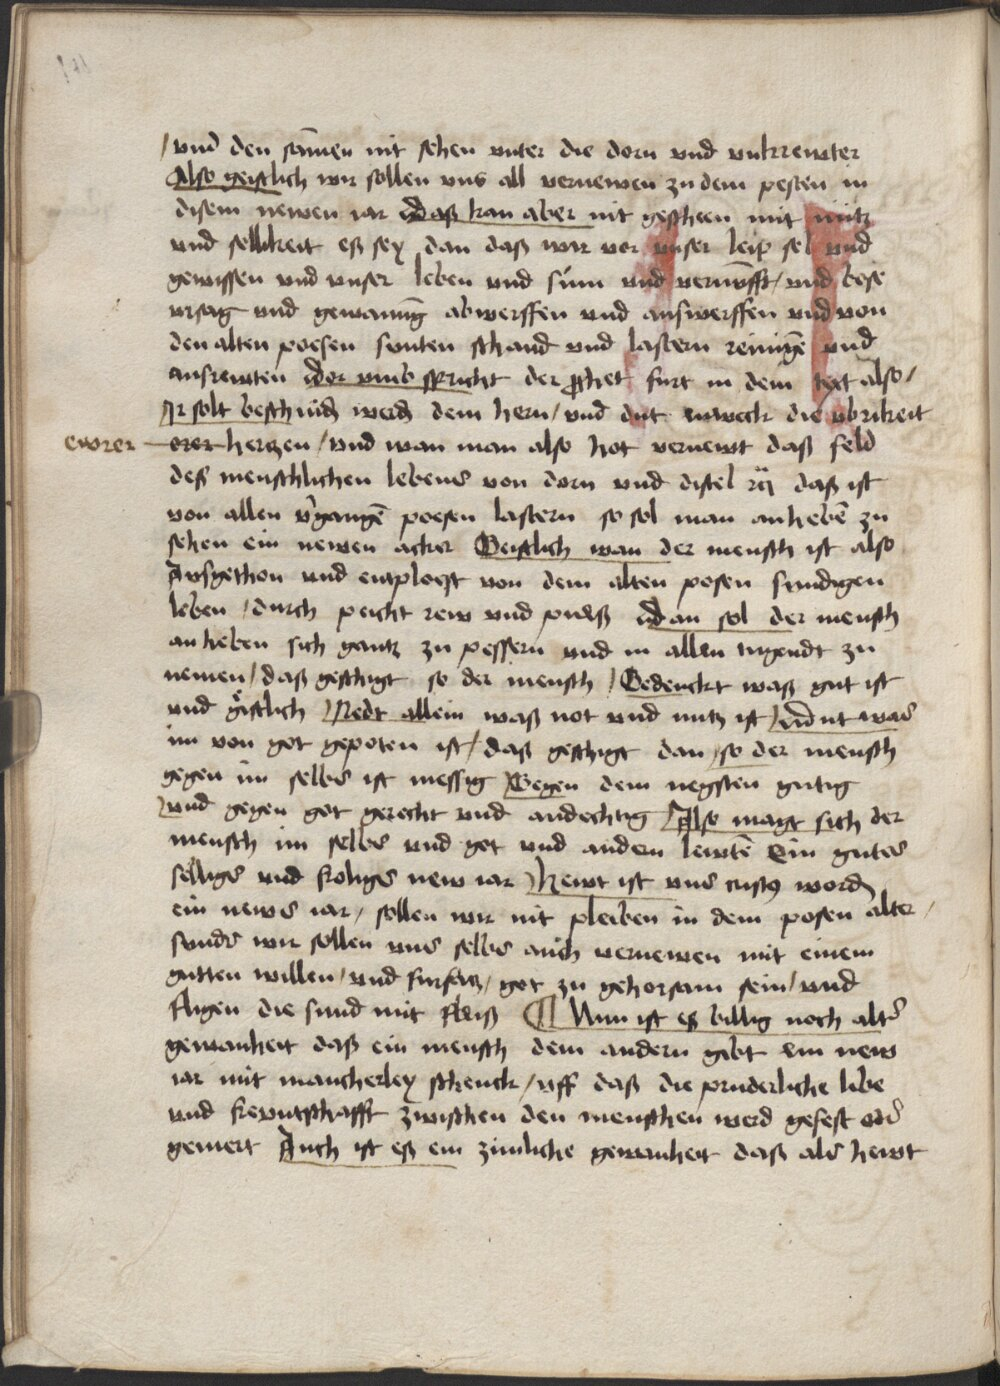 vnd den samen nit sehen vnter die dorn vnd vnkrewter
Also geistlich wir sollen vns all vernewen zu dem pesten in
disem newen iar Daß kan aber nit gescheen mit nutz
vnd sellikeit eß sey dan daß wir vor vnser leip sel vnd
gewissen vnd vnser leben vnd sinn vnd vernufft / vnd bose
vnd gewanung abwerffen vnd außwerffen vnd von
den alten poesen sunten schand vnd lastern reinigē vnd
außrewten Dor vmb spricht der ꝓphet furt in dem text also /
Ir solt beschnidē werdē dem hern / vnd dut enweck die vbrikeit
ewrer
erer hertzen / vnd wan man also hot vernewt daß feld
deß menschlichen lebens von dorn vnd distel rc̈ daß ist
von allen v̓gangē poesen lastern so sol man anhebē zu
sehen ein newen acker Geistlich wan der mensch ist also
Außgethon vnd entploeßt von dem alten posen sundigen
leben / durch peicht rew vnd pueß Dan sol der mensch
an heben sich gantz zu pessern vnd in allen tugendt zu
nemen / daß geschigt so der mensch / Gedenckt waß gut ist
vnd gaistlich / Redt allein waß not vnd nutz ist / vnd tut was
im von got gepoten ist / daß geschigt dan / so der mensch
gegen im selbs ist messig Gegen dem negsten gutig
vnd gegen got gerecht vnd andechtig Also magt sich der
mensch im selbs vnd got vnd andern lewtē Ein gutes
selligs vnd froligs new iar / Hewt ist vns cristꝰ wordē
ein news iar / sollen wir nit pleiben in dem posen alter /
sunds wir sollen vns selbs auch vernewen mit einem
gutten willen / vnd fursatz / got zu gehorsam sein / vnd
fligen die sund mit fleiß ¶ Nun ist eß billig noch altˢ
gewanheit daß ein mensch dem andern gibt ein new
iar mit mancherley schenck / vff daß die pruderliche libe
vnd frewntschafft zwischen den menschen werd gefest odˢ
gemert Auch ist eß ein zimliche gewanheit daß als hewt